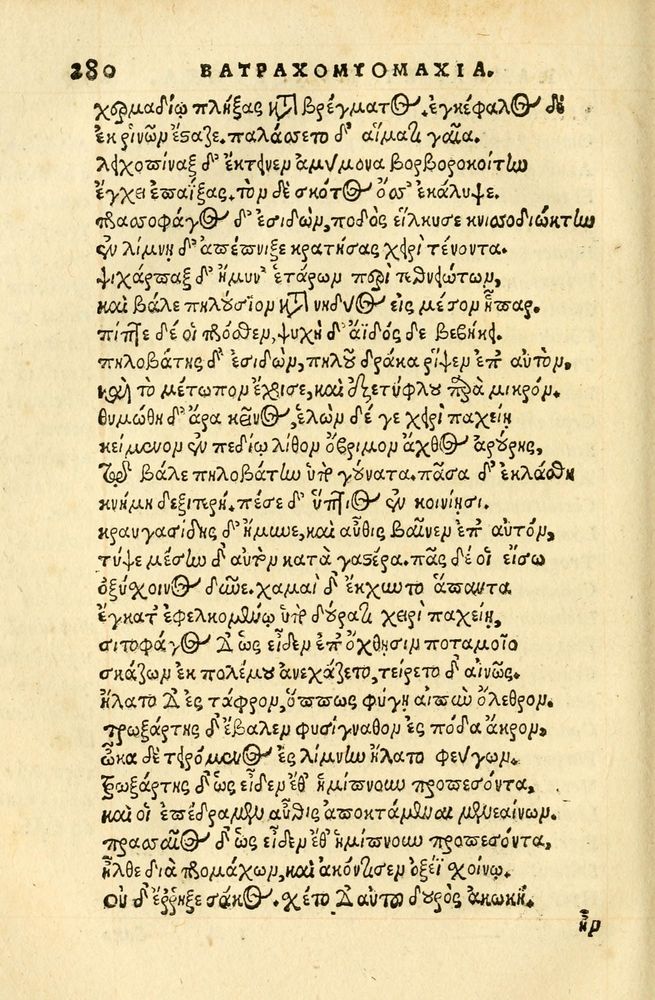 280 ΒΑΤΡΑΧΟΜΥΟΜΑΧΙΑ.
χερμαδίῳ πλήξας κατὰ βρέγματος. ἐγκέφαλος δὲ
ἐκ ῥινῶν ἔσταζε. παλάσσετο δ' αἵματι γαῖα.
λειχοπίναξ δ' ἔκτεινεν ἀμύμονα βορβοροκοίτην
ἔγχει ἐπαΐξας. τὸν δὲ σκότος ὄσσ' ἐκάλυψε.
πρασσοφάγος δ' ἐσιδὼν, ποδὸς εἵλκυσε κνισσοδιώκτην
ἐν λίμνῃ δ' ἀπέπνιξε κρατήσας χειρὶ τένοντα.
ψιχάρπαξ δ' ἤμυν' ἑτάρων περὶ τεθνειώτων,
καὶ βάλε πηλούσιον κατὰ νηδύος εἰς μέσον ἧπαρ.
πίπτε δέ οἱ πρόσθεν, ψυχὴ δ' ἀϊδός δε βεβήκει.
πηλοβάτης δ' ἐσιδὼν, πηλοῦ δράκα ῥίψεν ἐπ' αὐτὸν,
καὶ τὸ μέτωπον ἔχρισε, καὶ ἐξετύφλου παρὰ μικρόν.
θυμώθη δ' ἄρα κεῖνος, ἑλὼν δέ γε χειρὶ παχείῃ
κείμενον ἐν πεδίῳ λίθον ὄβριμον ἄχθος ἀρούρης,
τῷ βάλε πηλοβάτην ὑπὸ γούνατα. πᾶσα δ' ἐκλάσθη
κνήμη δεξιτερή. πέσε δ' ὕπτιος ἐν κονίῃσι.
κραυγασίδης δ' ἤμυνε, καὶ αὖθις βαῖνεν ἐπ' αὐτόν,
τύψε μέσην δ' αὐτὸν κατὰ γαστέρα. πᾶς δέ οἱ εἴσω
ὀξύχοινος δῦνε. χαμαὶ δ' ἔκχυντο ἅπαντα
ἔγκατ' ἐφελκομένῳ ὑπὸ δούρατι χειρὶ παχείῃ,
σιτοφάγος δ' ὡς εἶδεν ἐπ' ὄχθησιν ποταμοῖο
σκάζων ἐκ πολέμου ἀνεχάζετο, τείρετο δ' αἰνῶς.
ἥλατο δ' ἐς τάφρον, ὅππως φύγῃ αἰπὺν ὄλεθρον.
τρωξάρτης δ' ἔβαλεν φυσίγναθον ἐς πόδα ἄκρον,
ὦκα δὲ τειρόμενος ἐς λίμνην ἥλατο φεύγων.
τρωξάρτης δ' ὡς εἶδεν ἔθ' ἡμίπνουν προπεσόντα,
καὶ οἱ ἐπέδραμεν αὖθις ἀποκτάμεναι μενεαίνων.
πρασσαῖος δ' ὡς εἶδεν ἔθ' ἡμίπνουν προπεσόντα,
ἦλθε διὰ προμάχων, καὶ ἀκόντισεν ὀξέϊ χοίνῳ.
οὐ δ' ἔῤῥηξε σάκος. χέτο δ' αὐτοῦ δουρὸς ἀκωκή.
ἦρ